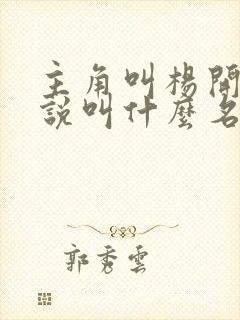 主角叫楊開
說叫什麼名
郭秀雲